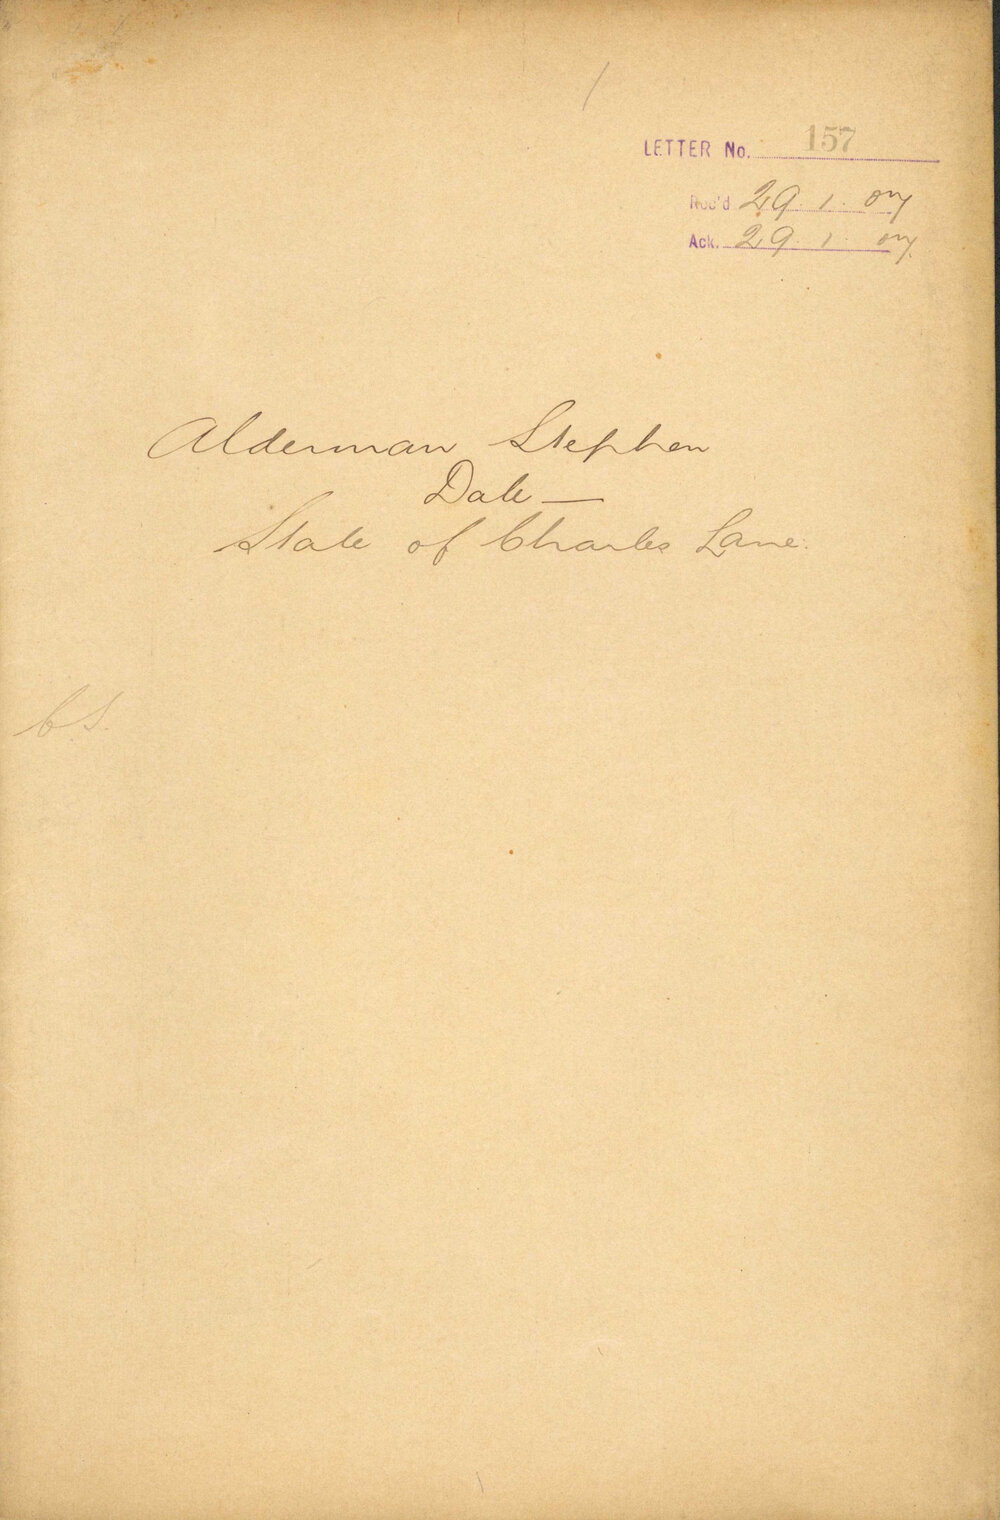 LETTER No. 157
Rec'd 29. 1. 07
Ack. 29. 1. 07.
Alderman Stephen
Dale —
State of Charles Lane.
C.S.